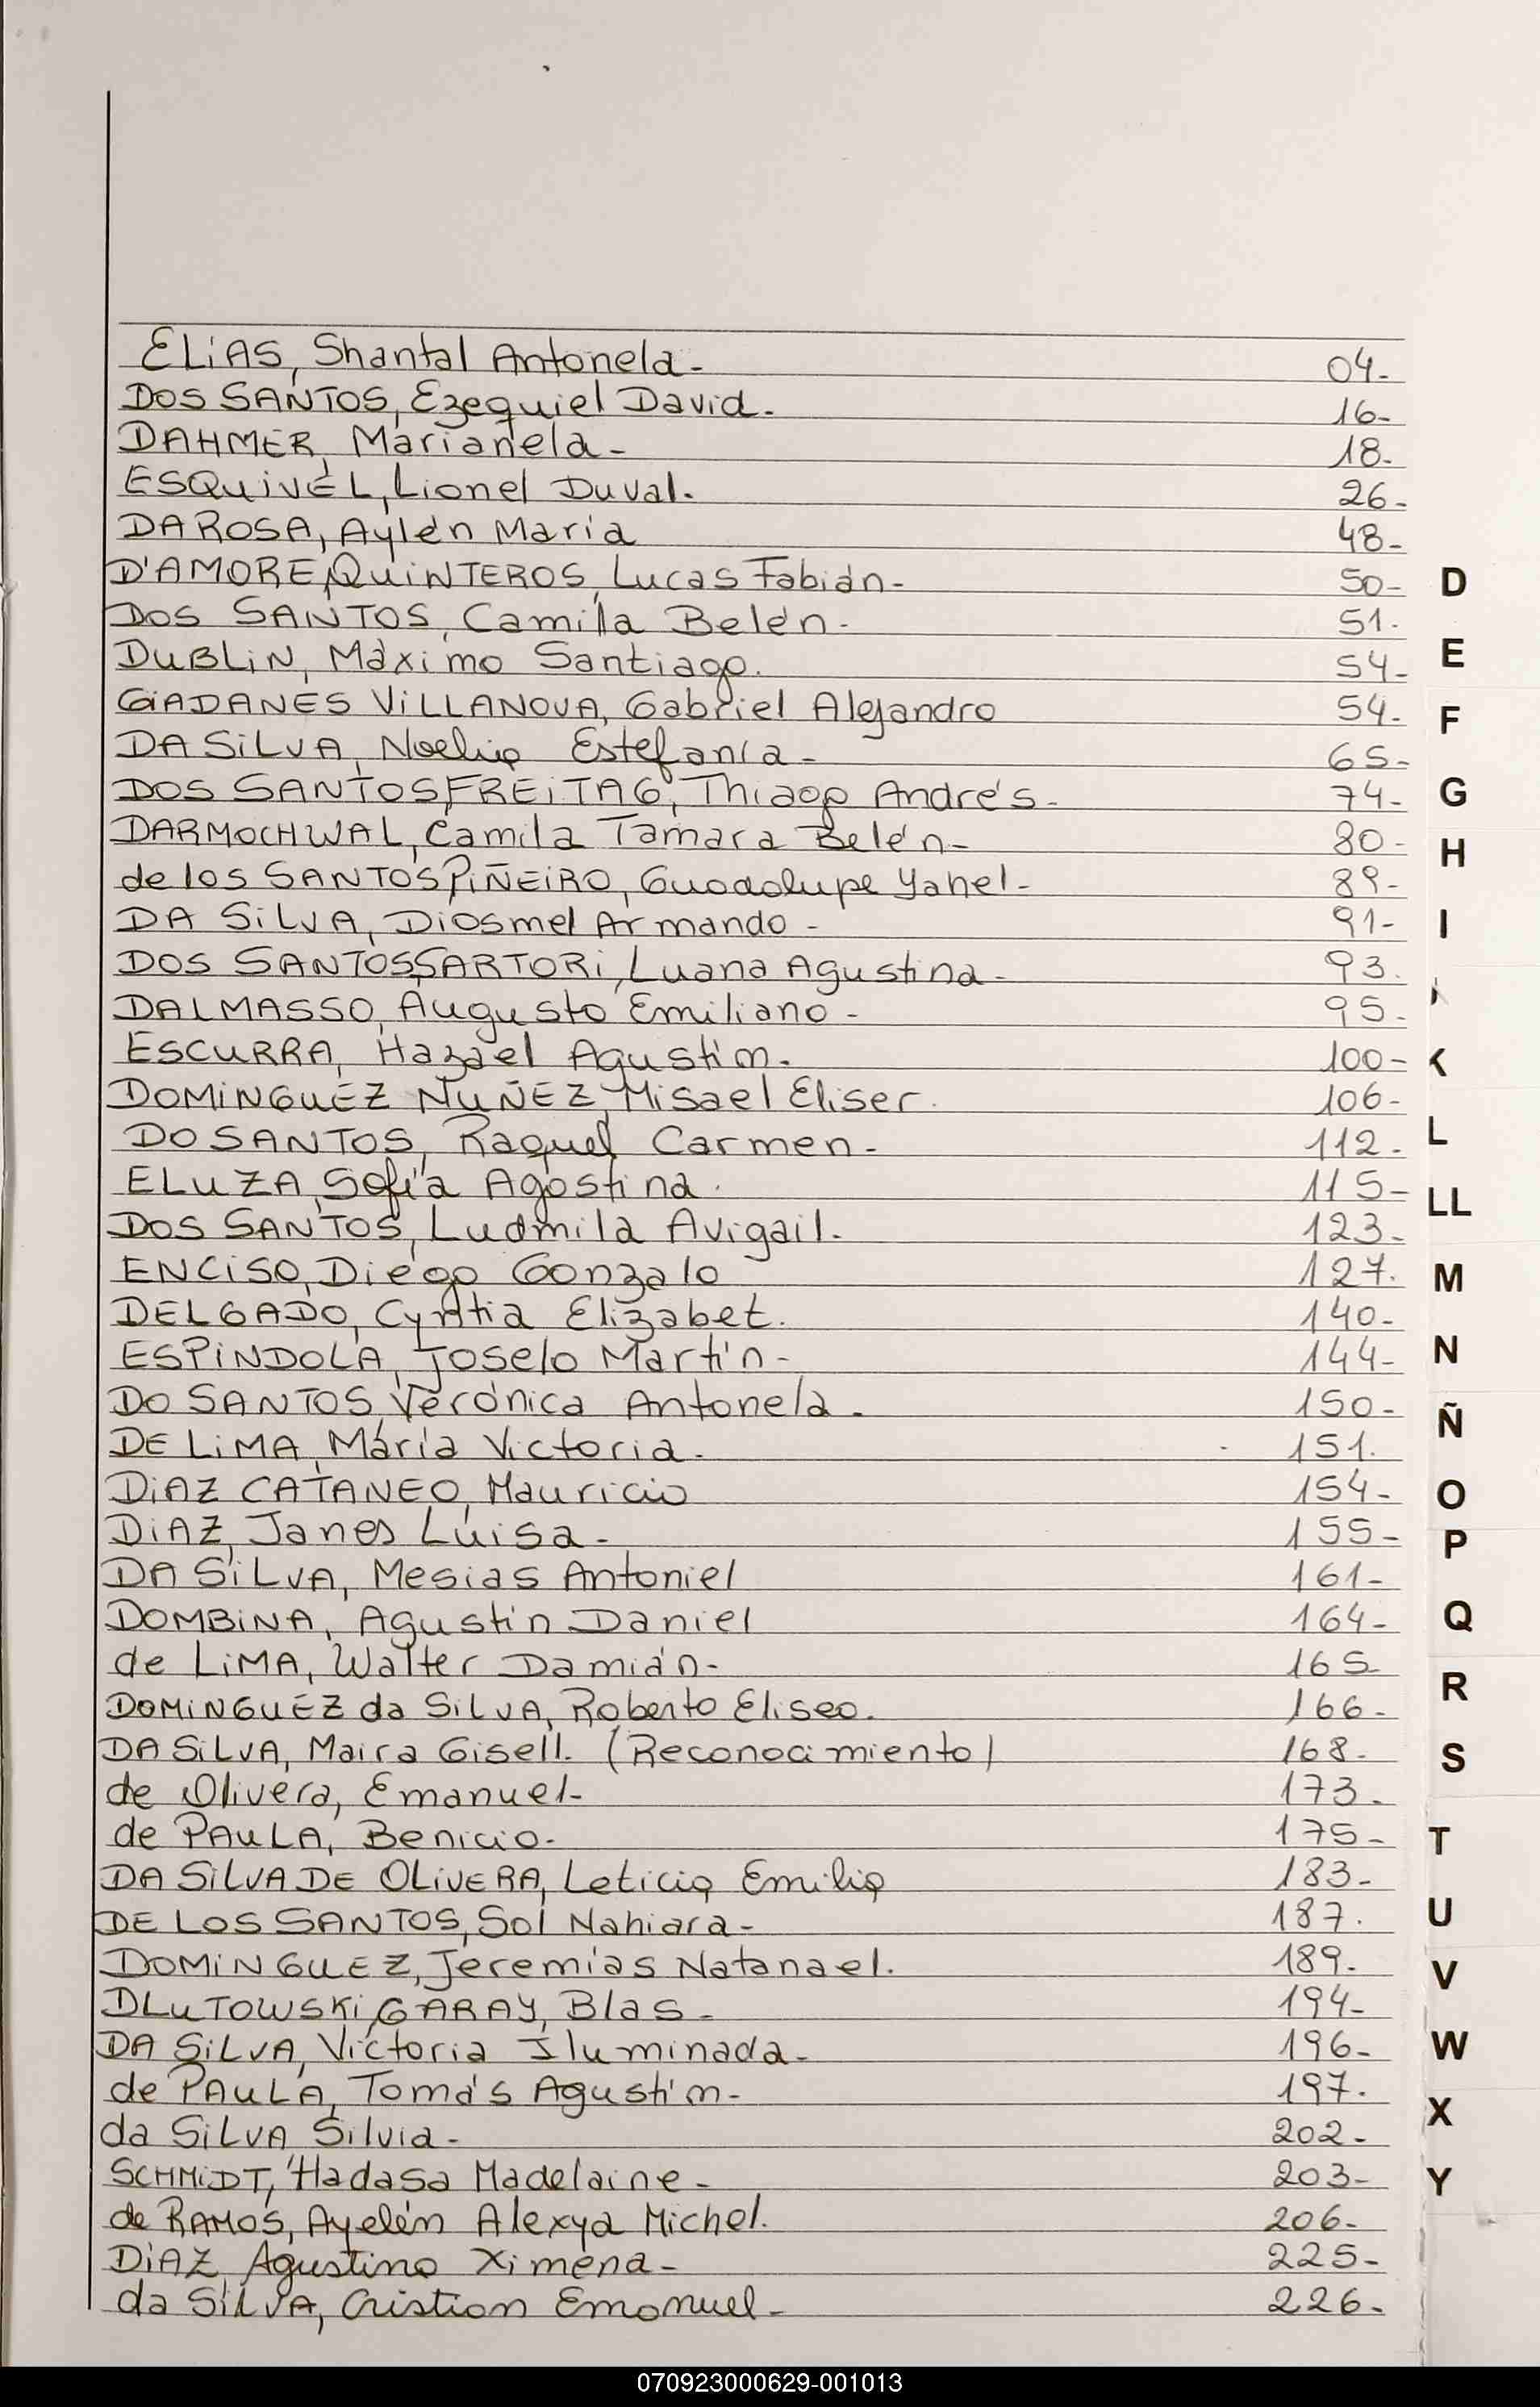 ELIAS, Shantal Antonela- 04-
DOS SANTOS, Ezequiel David. 16-
DAHMER, Marianela- 18-
ESQUIVEL, Lionel Duval. 26-
DA ROSA, Aylén María 48-
D'AMORE QUINTEROS, Lucas Fabián- 50-
DOS SANTOS, Camila Belén- 51.
DUBLIN, Máximo Santiago. 54-
GIADANES VILLANOVA, Gabriel Alejandro 54-
DA SILVA, Noelia Estefanía- 65-
DOS SANTOS FREITAG, Thiago Andrés- 74-
DARMOCHWAL, Camila Tamara Belén- 80-
de los SANTOS PIÑEIRO, Guadalupe Yahel- 89-
DA SILVA, Diosmel Armando- 91-
DOS SANTOS SARTORI, Luana Agustina- 93.
DALMASSO, Augusto Emiliano- 95-
ESCURRA, Hazael Agustín. 100-
DOMINGUEZ NUÑEZ, Misael Eliser. 106-
DO SANTOS, Raquel Carmen- 112-
ELUZA, Sofía Agostina. 115-
DOS SANTOS, Ludmila Avigail. 123-
ENCISO, Diego Gonzalo 127.
DELGADO, Cyntia Elizabet. 140-
ESPINDOLA, Joselo Martín- 144-
DO SANTOS, Verónica Antonela- 150-
DE LIMA, María Victoria- 151.
DIAZ CATANEO, Mauricio 154-
DIAZ, Janes Luisa- 155-
DA SILVA, Mesias Antoniel 161-
DOMBINA, Agustín Daniel 164-
de LIMA, Walter Damián- 165
DOMINGUEZ da SILVA, Roberto Eliseo. 166-
DA SILVA, Maira Gisell. (Reconocimiento) 168-
de Olivera, Emanuel- 173-
de PAULA, Benicio- 175-
DA SILVA DE OLIVERA, Leticia Emilia 183-
DE LOS SANTOS, Sol Nahiara- 187.
DOMINGUEZ, Jeremías Natanael. 189-
DLUTOWSKI GARAY, Blas- 194-
DA SILVA, Victoria Iluminada- 196-
de PAULA, Tomás Agustín- 197.
da SILVA Silvia- 202-
SCHMIDT, Hadasa Madelaine- 203-
de RAMOS, Ayelén Alexya Michel. 206-
DIAZ, Agustina Ximena- 225-
da SILVA, Cristian Emanuel- 226-
D
E
F
G
H
I
K
L
LL
M
N
Ñ
O
P
Q
R
S
T
U
V
W
X
Y
070923000629-001013